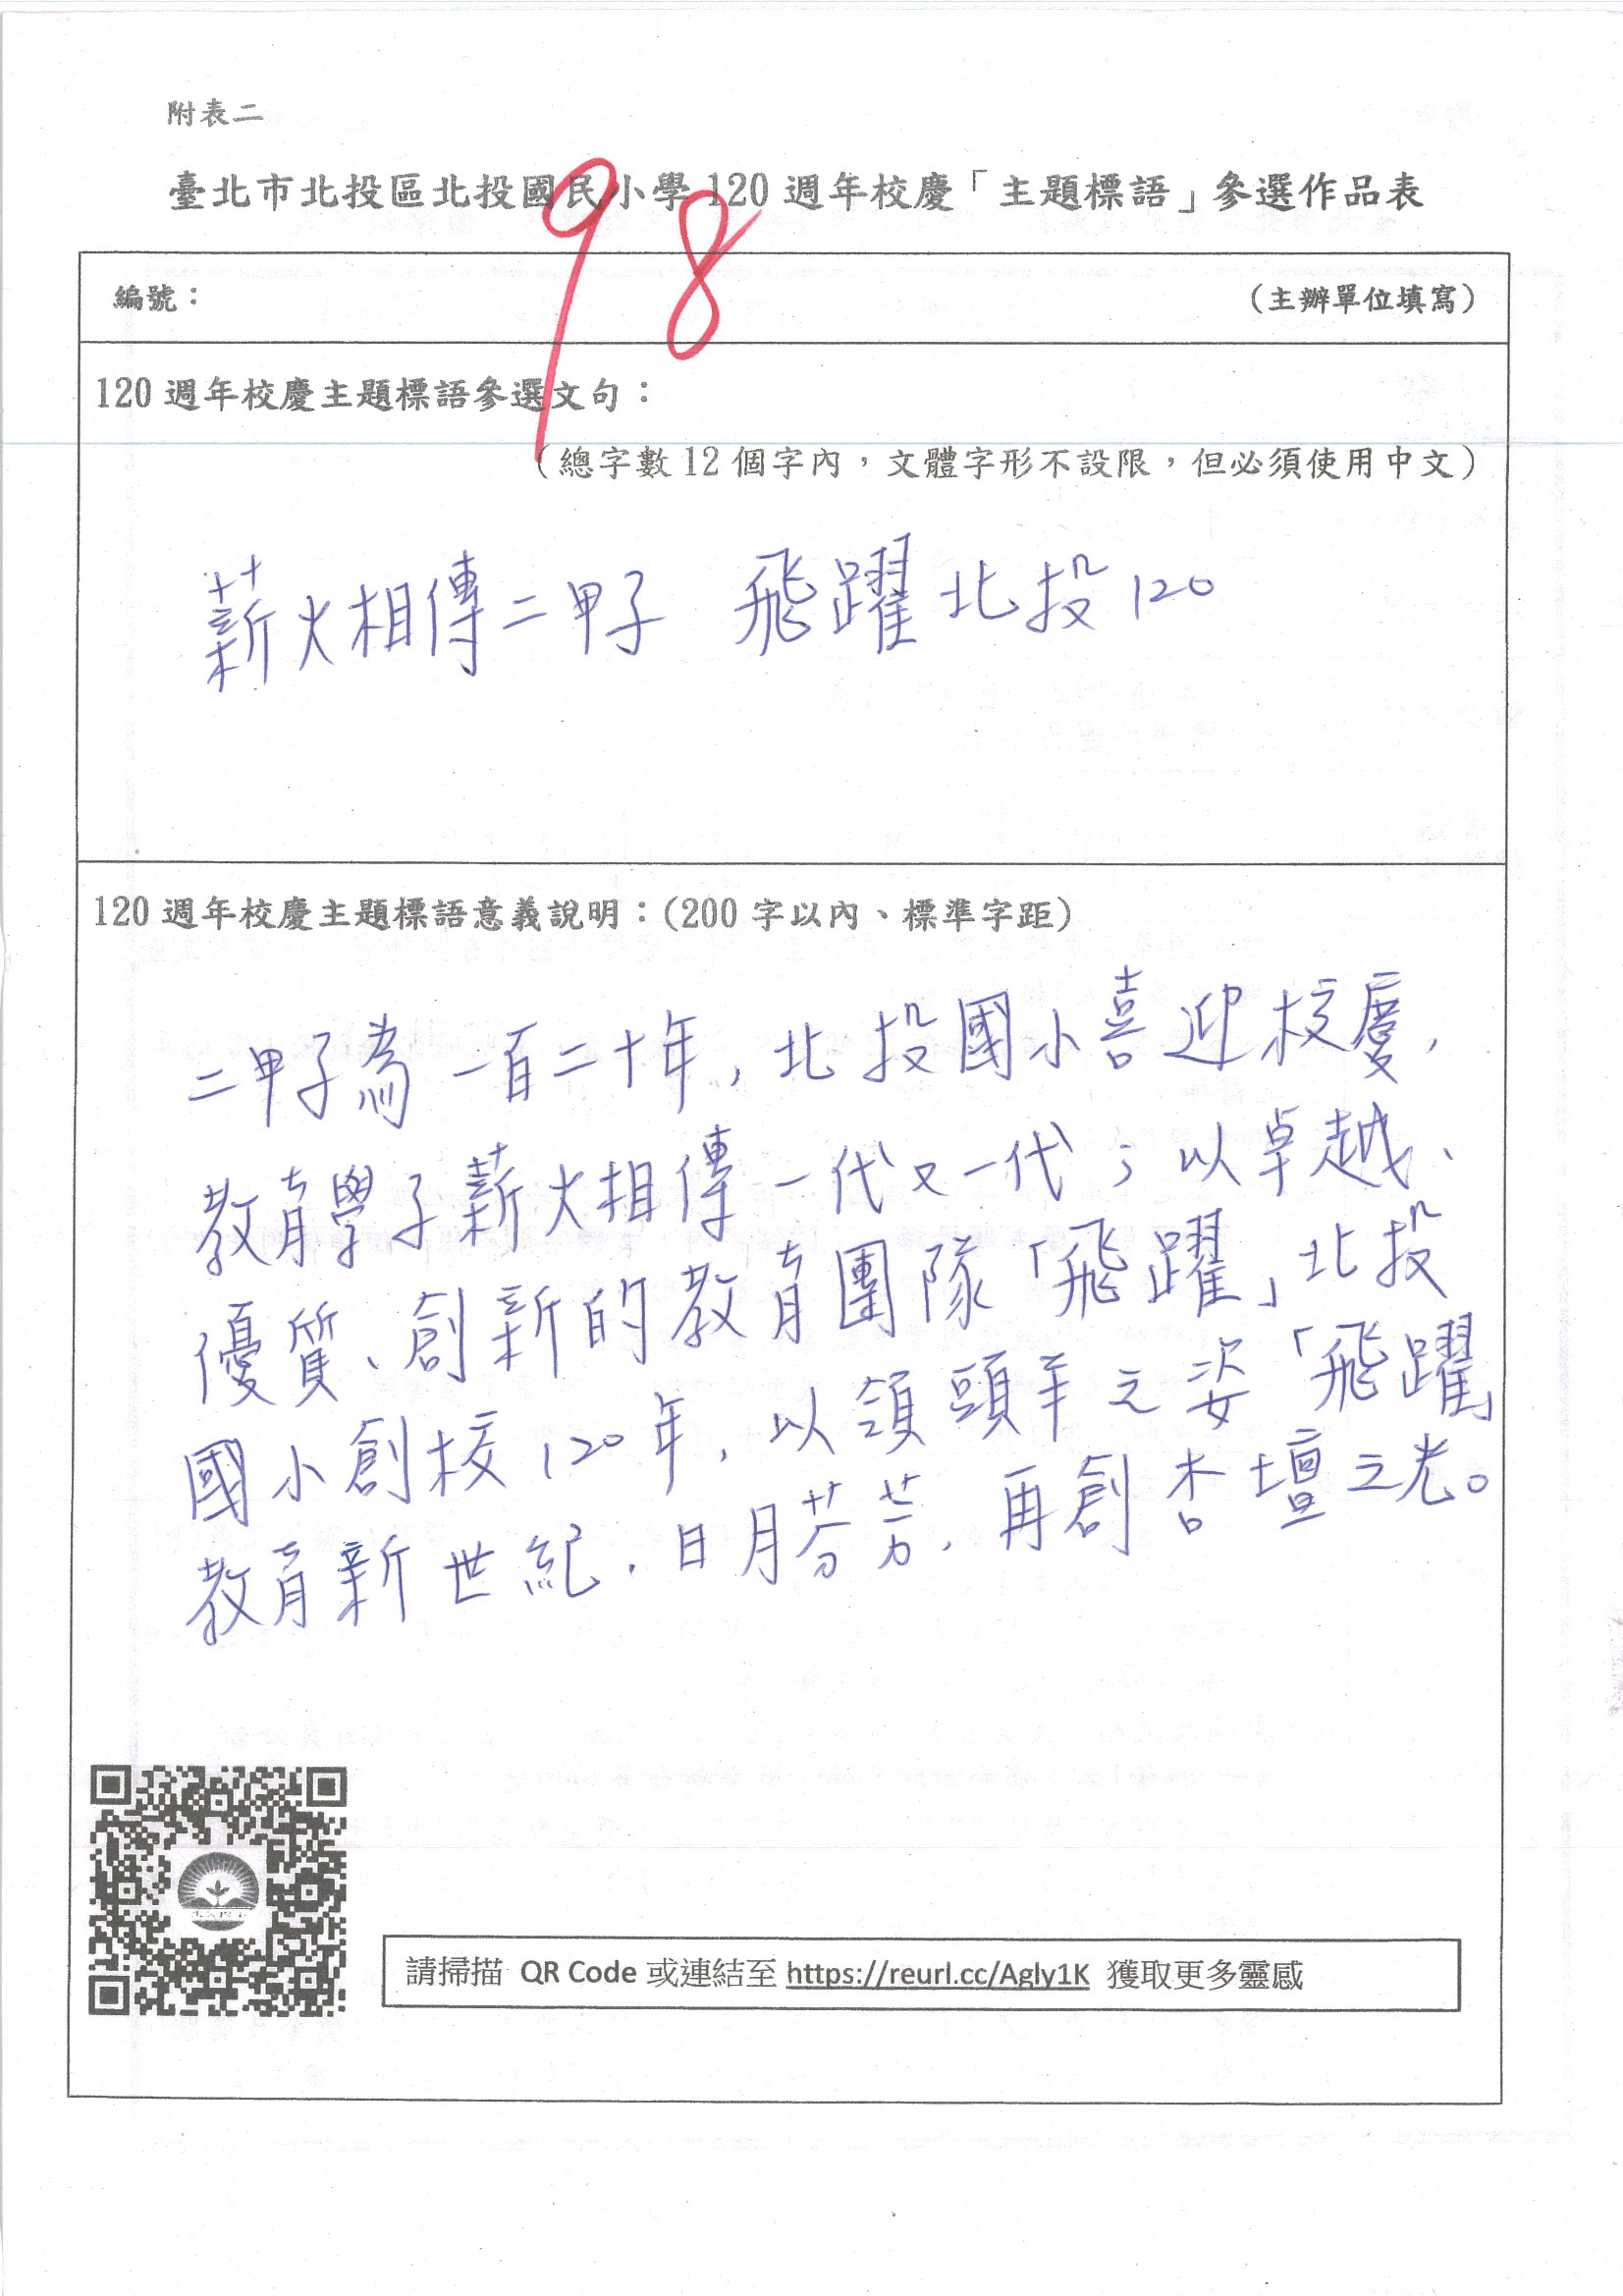 附表二
臺北市北投區北投國民小學 120 週年校慶「主題標語」參選作品表
98
編號：
（主辦單位填寫）
120 週年校慶主題標語參選文句：
（總字數 12 個字內，文體字形不設限，但必須使用中文）
薪火相傳二甲子 飛躍北投120
120 週年校慶主題標語意義說明：(200 字以內、標準字距)
二甲子為一百二十年，北投國小喜迎校慶，
教育學子薪火相傳一代又一代；以卓越、
優質、創新的教育團隊「飛躍」北投
國小創校120年，以領頭羊之姿「飛躍」
教育新世紀，日月芬芳，再創杏壇之光。
請掃描 QR Code 或連結至 https://reurl.cc/Agly1K 獲取更多靈感